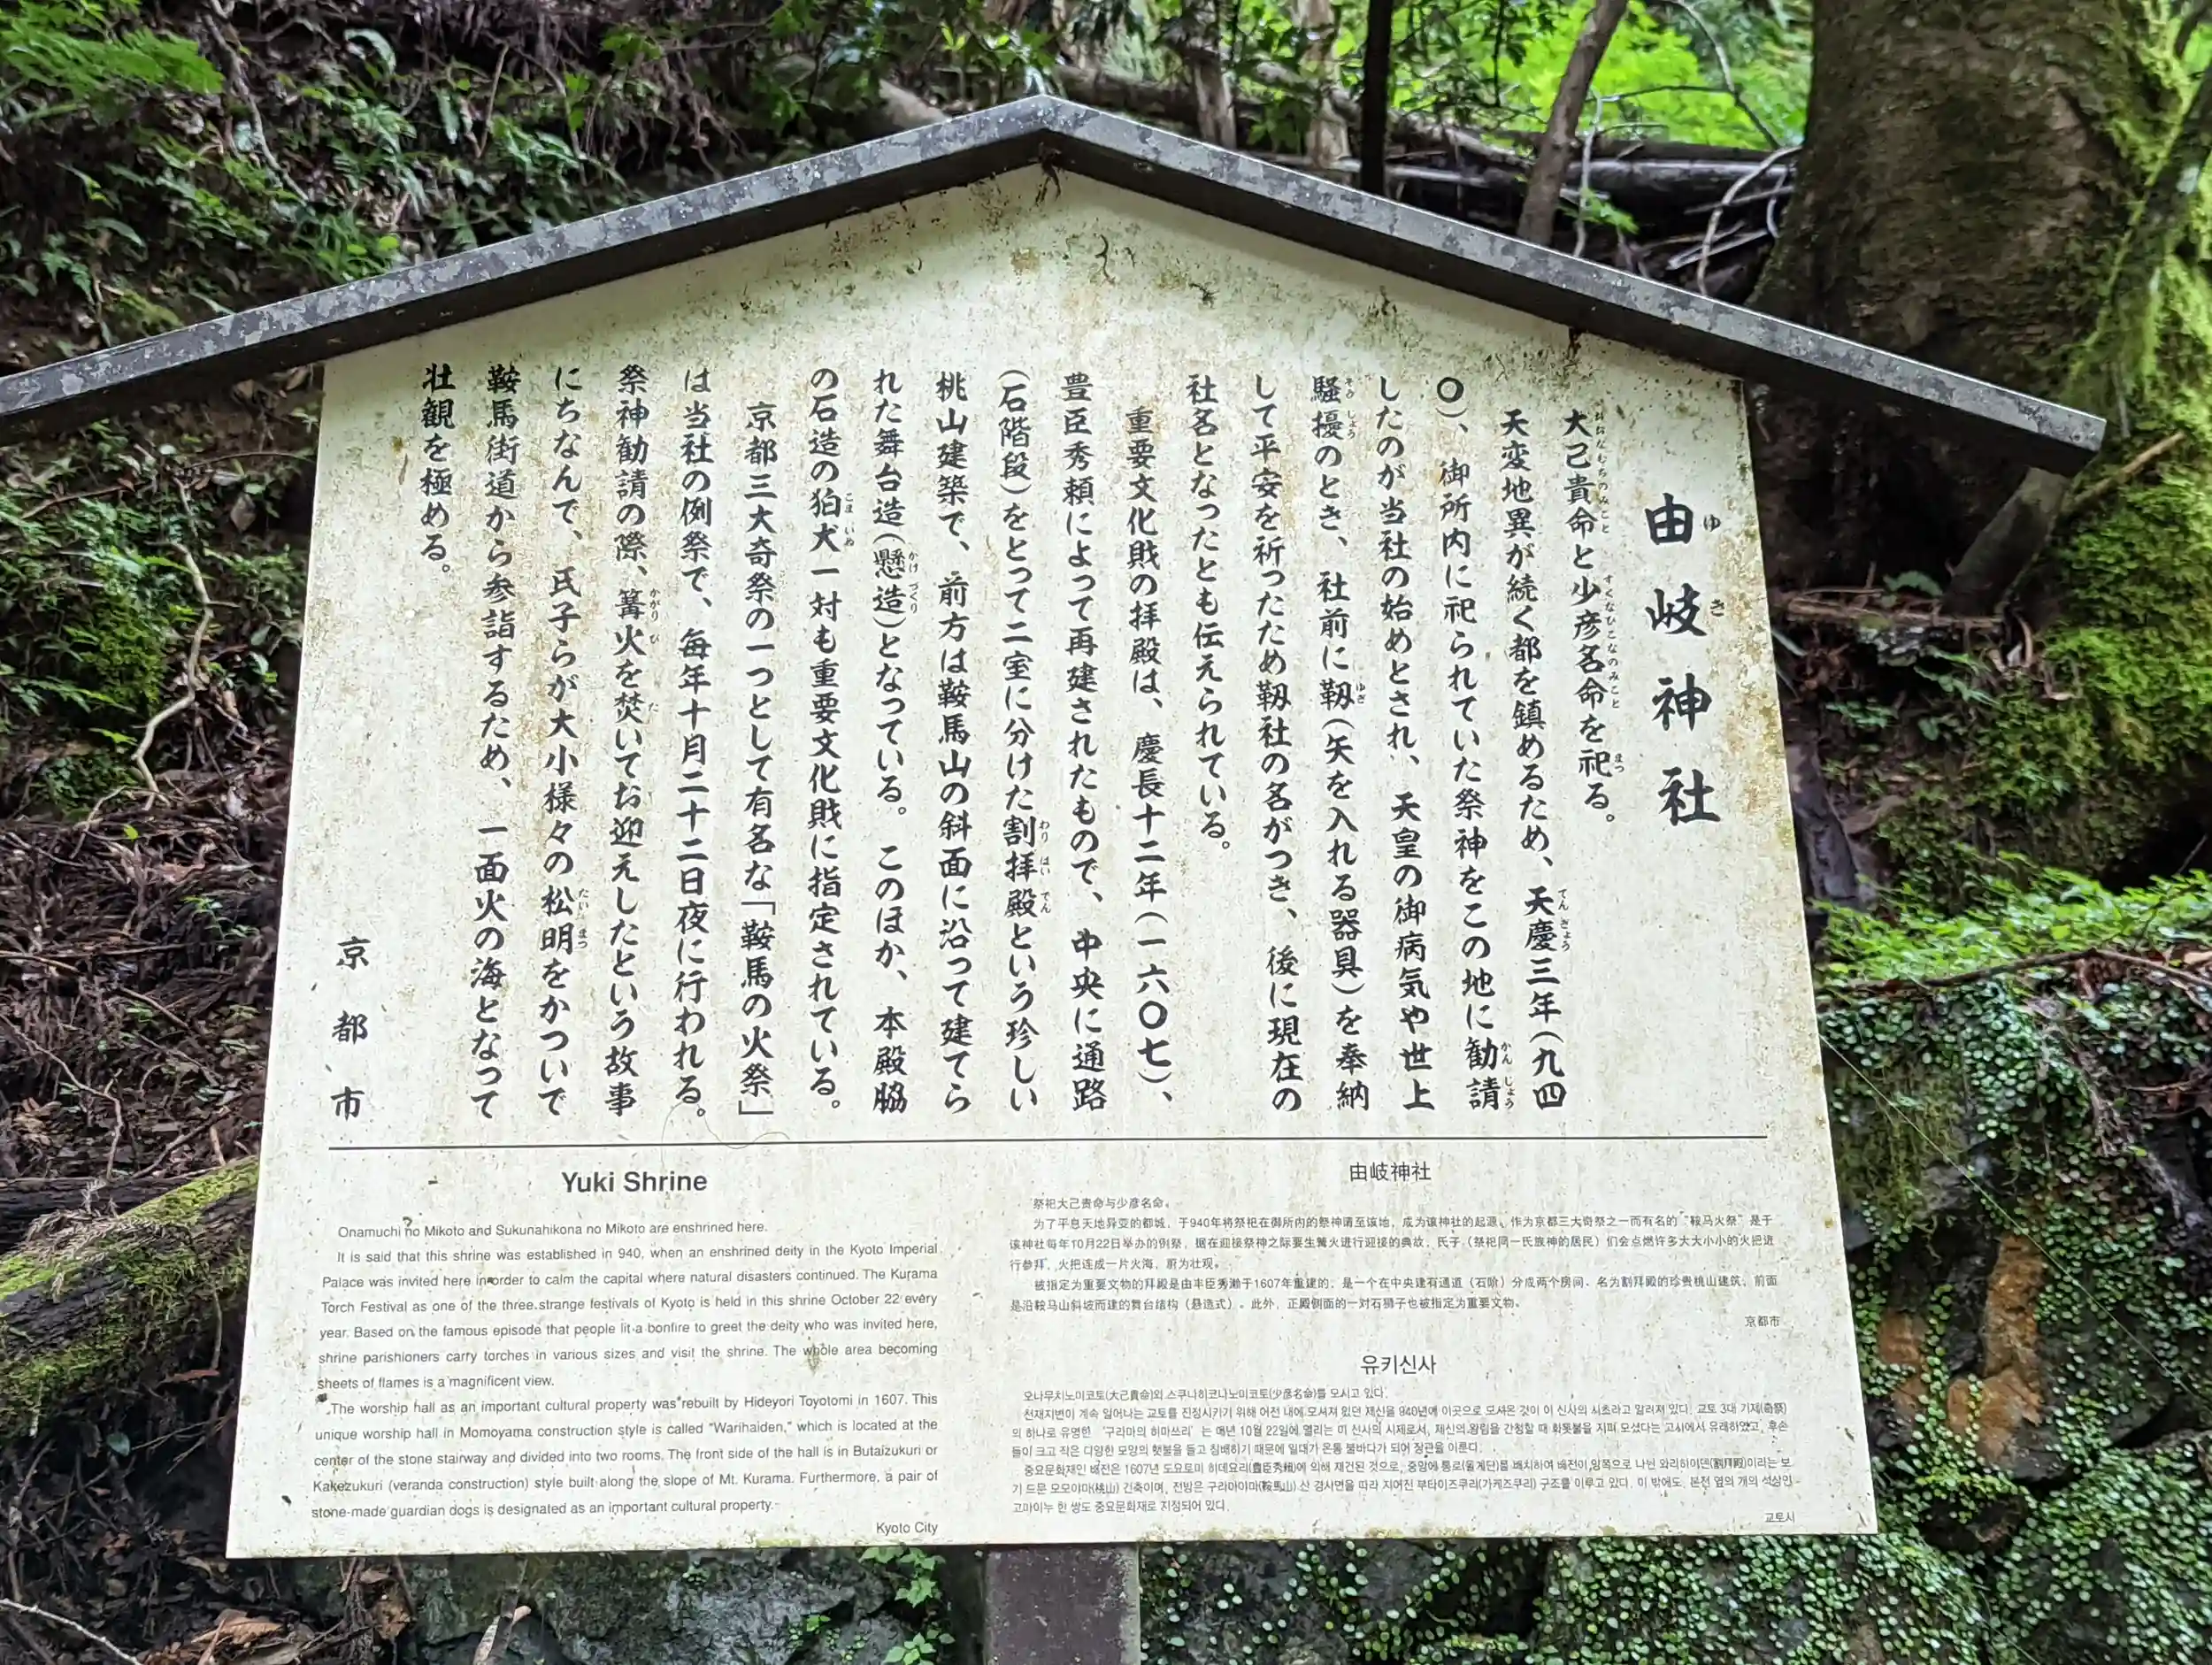 由岐神社
大己貴命と少彦名命を祀る。
天変地異が続く都を鎮めるため、天慶三年(九四
〇)、御所内に祀られていた祭神をこの地に勧請
したのが当社の始めとされ、天皇の御病気や世上
騒擾のとき、社前に靱(矢を入れる器具)を奉納
して平安を祈ったため靱社の名がつき、後に現在の
社名となったとも伝えられている。
重要文化財の拝殿は、慶長十二年(一六〇七)、
豊臣秀頼によって再建されたもので、中央に通路
(石階段)をとって二室に分けた割拝殿という珍しい
桃山建築で、前方は鞍馬山の斜面に沿って建てら
れた舞台造(懸造)となっている。このほか、本殿脇
の石造の狛犬一対も重要文化財に指定されている。
京都三大奇祭の一つとして有名な「鞍馬の火祭」
は当社の例祭で、毎年十月二十二日夜に行われる。
祭神勧請の際、篝火を焚いてお迎えしたという故事
にちなんで、氏子らが大小様々の松明をかついで
鞍馬街道から参詣するため、一面火の海となって
壮観を極める。
京都市
Yuki Shrine
Onamuchi no Mikoto and Sukunahikona no Mikoto are enshrined here.
It is said that this shrine was established in 940, when an enshrined deity in the Kyoto Imperial
Palace was invited here in order to calm the capital where natural disasters continued. The Kurama
Torch Festival as one of the three strange festivals of Kyoto is held in this shrine October 22 every
year. Based on the famous episode that people lit a bonfire to greet the deity who was invited here,
shrine parishioners carry torches in various sizes and visit the shrine. The whole area becoming
sheets of flames is a magnificent view.
The worship hall as an important cultural property was rebuilt by Hideyori Toyotomi in 1607. This
unique worship hall in Momoyama construction style is called "Warihaiden," which is located at the
center of the stone stairway and divided into two rooms. The front side of the hall is in Butaizukuri or
Kakezukuri (veranda construction) style built along the slope of Mt. Kurama. Furthermore, a pair of
stone-made guardian dogs is designated as an important cultural property.
Kyoto City
由岐神社
祭祀大己贵命与少彦名命。
为了平息天地异变的都城，于940年将祭祀在御所内的祭神请至该地，成为该神社的起源。作为京都三大奇祭之一而有名的“鞍马火祭”是于
该神社每年10月22日举办的例祭，据在迎接祭神之际要生篝火进行迎接的典故，氏子（祭祀同一氏族神的居民）们会点燃许多大大小小的火把进
行参拜，火把连成一片火海，蔚为壮观。
被指定为重要文物的拜殿是由丰臣秀濑于1607年重建的，是一个在中央建有通道（石阶）分成两个房间、名为割拜殿的珍贵桃山建筑，前面
是沿鞍马山斜坡而建的舞台结构（悬造式）。此外，正殿侧面的一对石狮子也被指定为重要文物。
京都市
유키신사
오나무치노미코토(大己貴命)와 스쿠나히코나노미코토(少彦名命)를 모시고 있다.
천재지변이 계속 일어나는 교토를 진정시키기 위해 어전 내에 모셔져 있던 제신을 940년에 이곳으로 모셔온 것이 이 신사의 시초라고 알려져 있다. 교토 3대 기제(奇祭)
의 하나로 유명한 '구라마의 히마쓰리'는 매년 10월 22일에 열리는 이 신사의 시제로서, 제신의 왕림을 간청할 때 화톳불을 지펴 모셨다는 고사에서 유래하였고, 후손
들이 크고 작은 다양한 모양의 횃불을 들고 참배하기 때문에 일대가 온통 불바다가 되어 장관을 이룬다.
중요문화재인 배전은 1607년 도요토미 히데요리(豊臣秀頼)에 의해 재건된 것으로, 중앙에 통로(돌계단)를 배치하여 배전이 양쪽으로 나뉜 와리하이덴(割拜殿)이라는 보
기 드문 모모야마(桃山) 건축이며, 전방은 구라마야마(鞍馬山)산 경사면을 따라 지어진 부타이즈쿠리(가케즈쿠리) 구조를 이루고 있다. 이 밖에도, 본전 옆의 개의 석상인
고마이누 한 쌍도 중요문화재로 지정되어 있다.
교토시